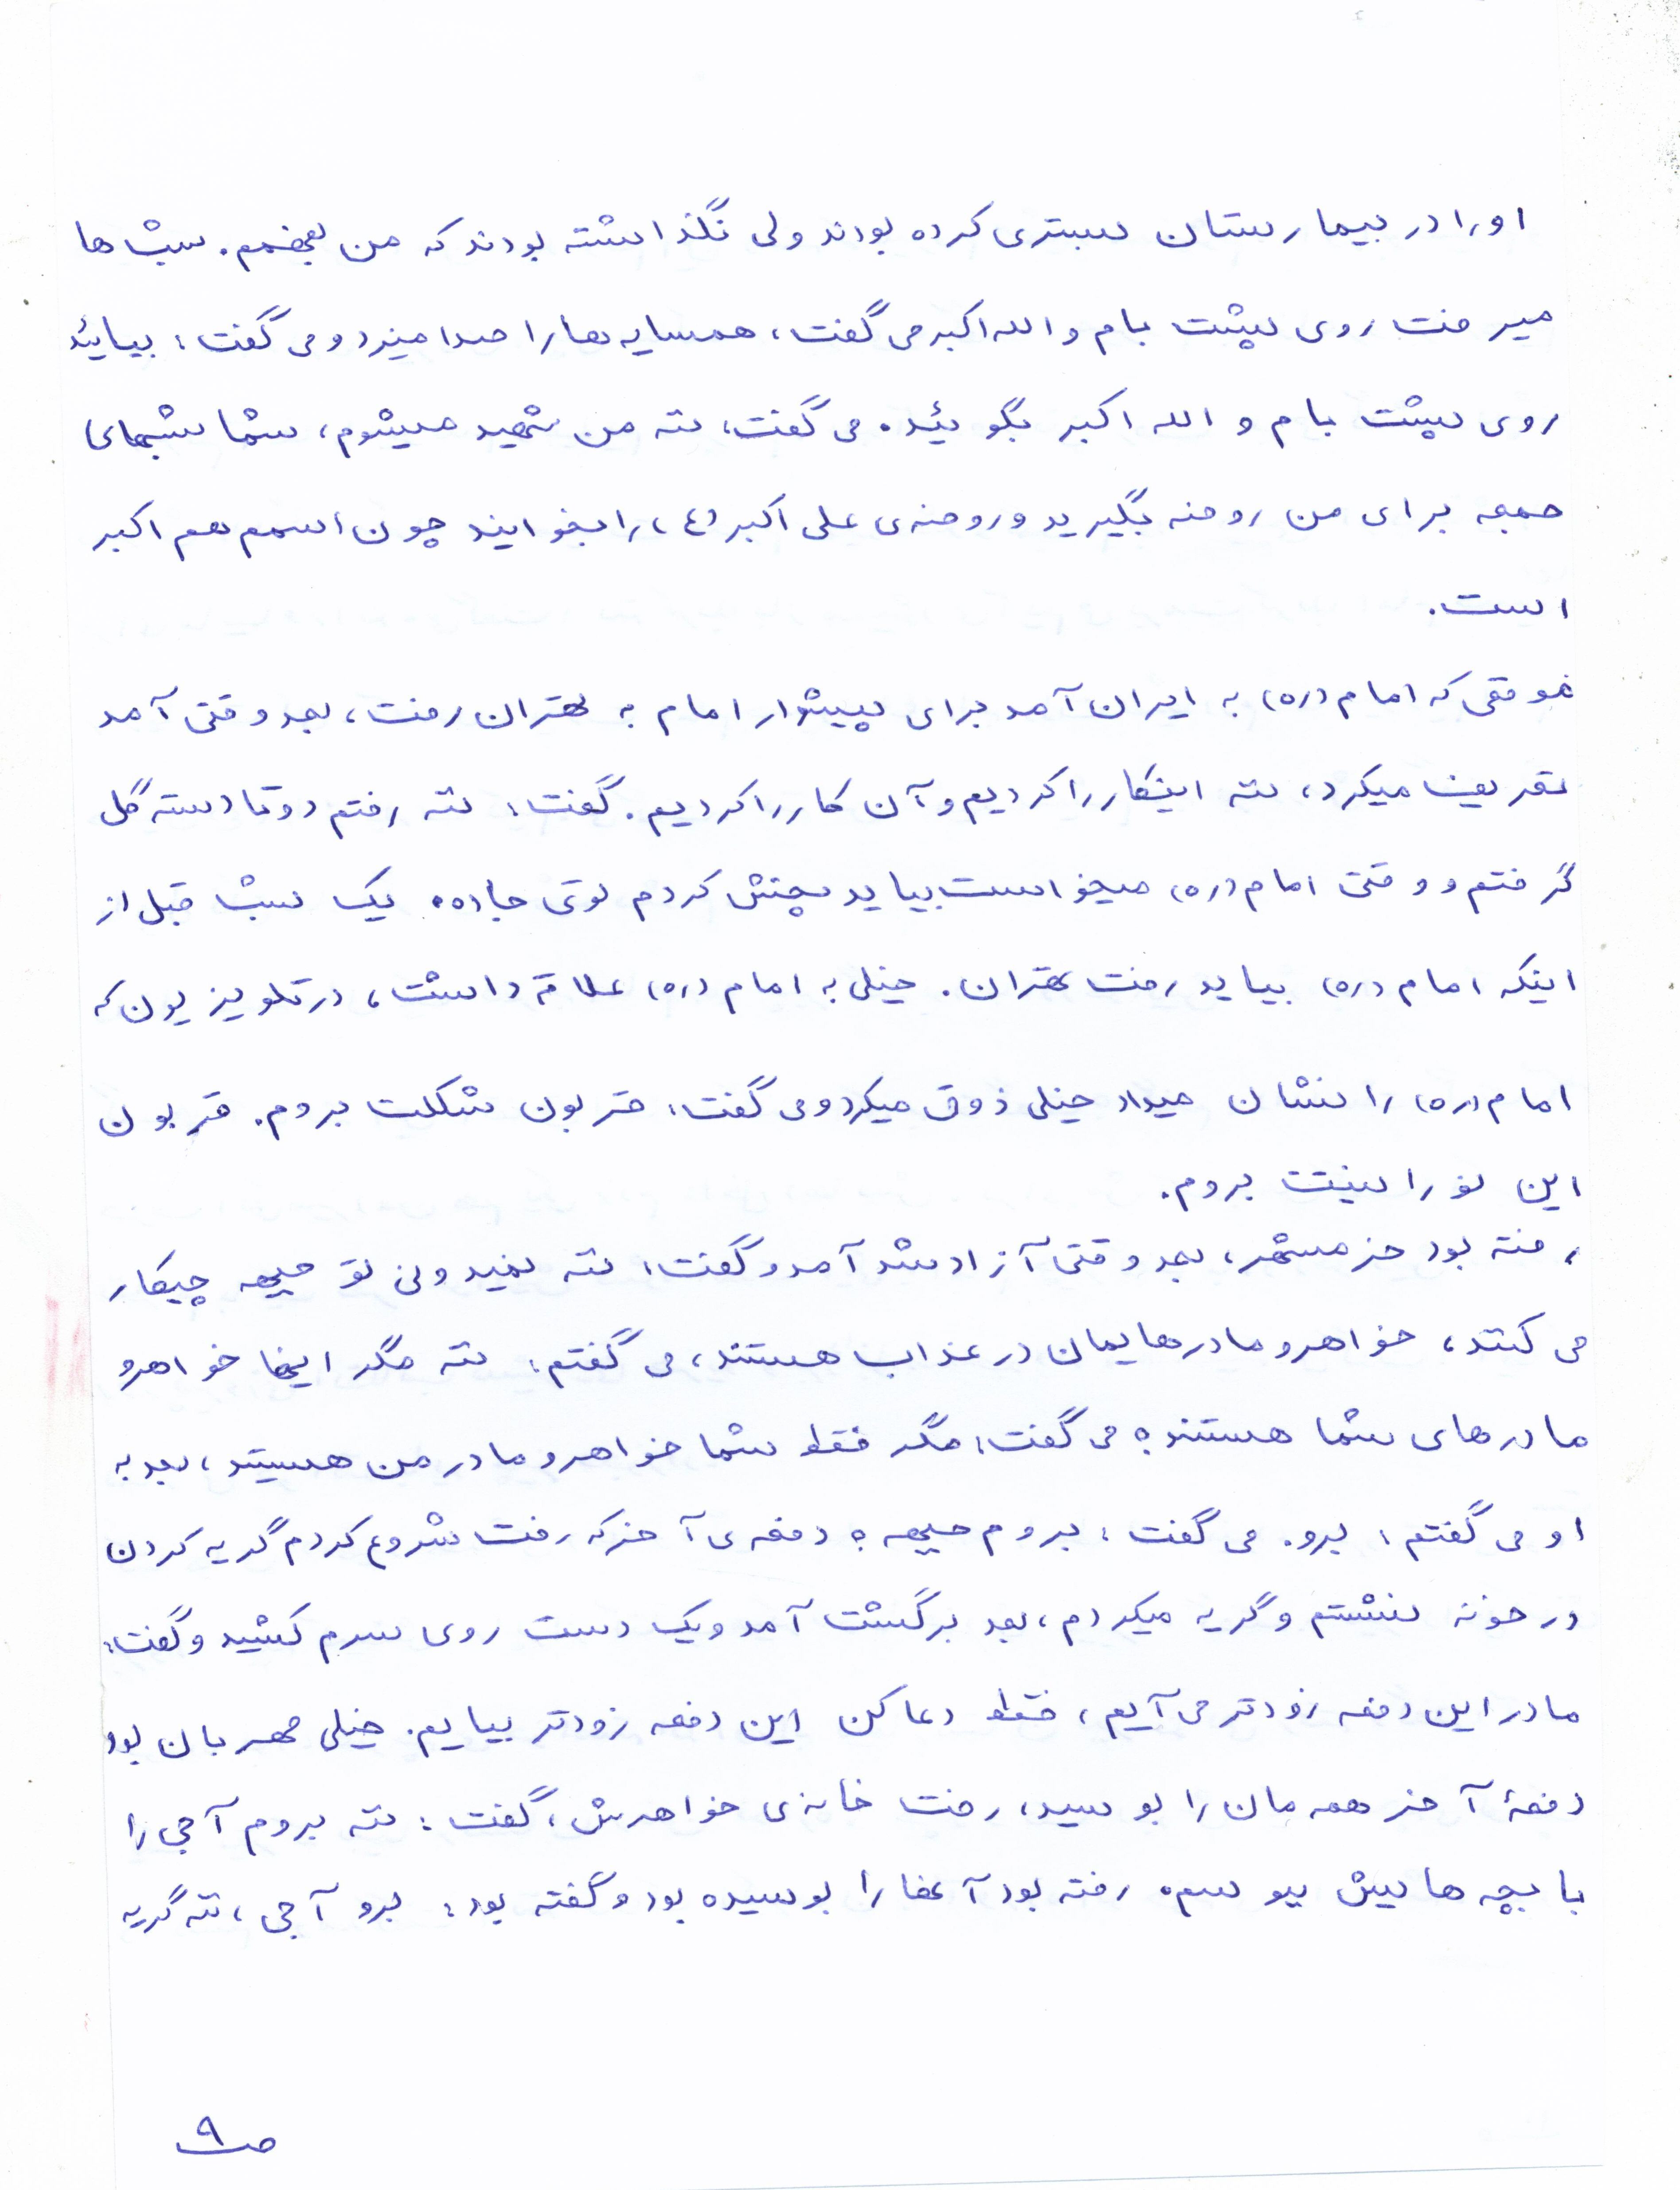 او را در بیمارستان بستری کرده بودند ولی نگذاشته بودند که من بفهمم. شب ها
میرفت روی پشت بام و الله اکبر می گفت، همسایه ها را صدا میزد و می گفت: بیایید
روی پشت بام و الله اکبر بگوئید. می گفت، ننه من شهید میشوم، شما شبهای
جمعه برای من روضه بگیرید و روضه ی علی اکبر (ع) را بخوانید چون اسمم هم اکبر
است.
موقعی که امام (ره) به ایران آمد برای پیشواز امام به تهران رفت، بعد وقتی آمد
تعریف میکرد، ننه اینکار را کردیم و آن کار را کردیم. گفت: ننه رفتم دو تا دسته گل
گرفتم و وقتی امام (ره) میخواست بیاید پخش کردم توی جاده. یک شب قبل از
اینکه امام (ره) بیاید رفت تهران. خیلی به امام (ره) علاقه داشت، در تلویزیون که
امام (ره) را نشان میداد خیلی ذوق میکرد و می گفت: قربون شکلت بروم. قربون
این نورانیتت بروم.
رفته بود خرمشهر، بعد وقتی آزاد شد آمد و گفت: ننه نمیدونی تو جبهه چیکار
می کنند، خواهر و مادرهایمان در عذاب هستند، می گفتم: ننه مگر اینها خواهر و
مادرهای شما هستند؟ می گفت: مگر فقط شما خواهر و مادر من هستید، بعد به
او می گفتم: برو. می گفت: بروم جبهه؟ دفعه ی آخر که رفت شروع کردم گریه کردن
در خونه نشستم و گریه میکردم، بعد برگشت آمد و یک دست روی سرم کشید و گفت:
مادر این دفعه زودتر می آیم، فقط دعا کن این دفعه زودتر بیایم. خیلی مهربان بود
دفعهٔ آخر همه مان را بوسید، رفت خانه ی خواهرش، گفت: ننه بروم آجی را
با بچه هایش ببوسم. رفته بود آنها را بوسیده بود و گفته بود: برو آجی، ننه گریه
ص ۹